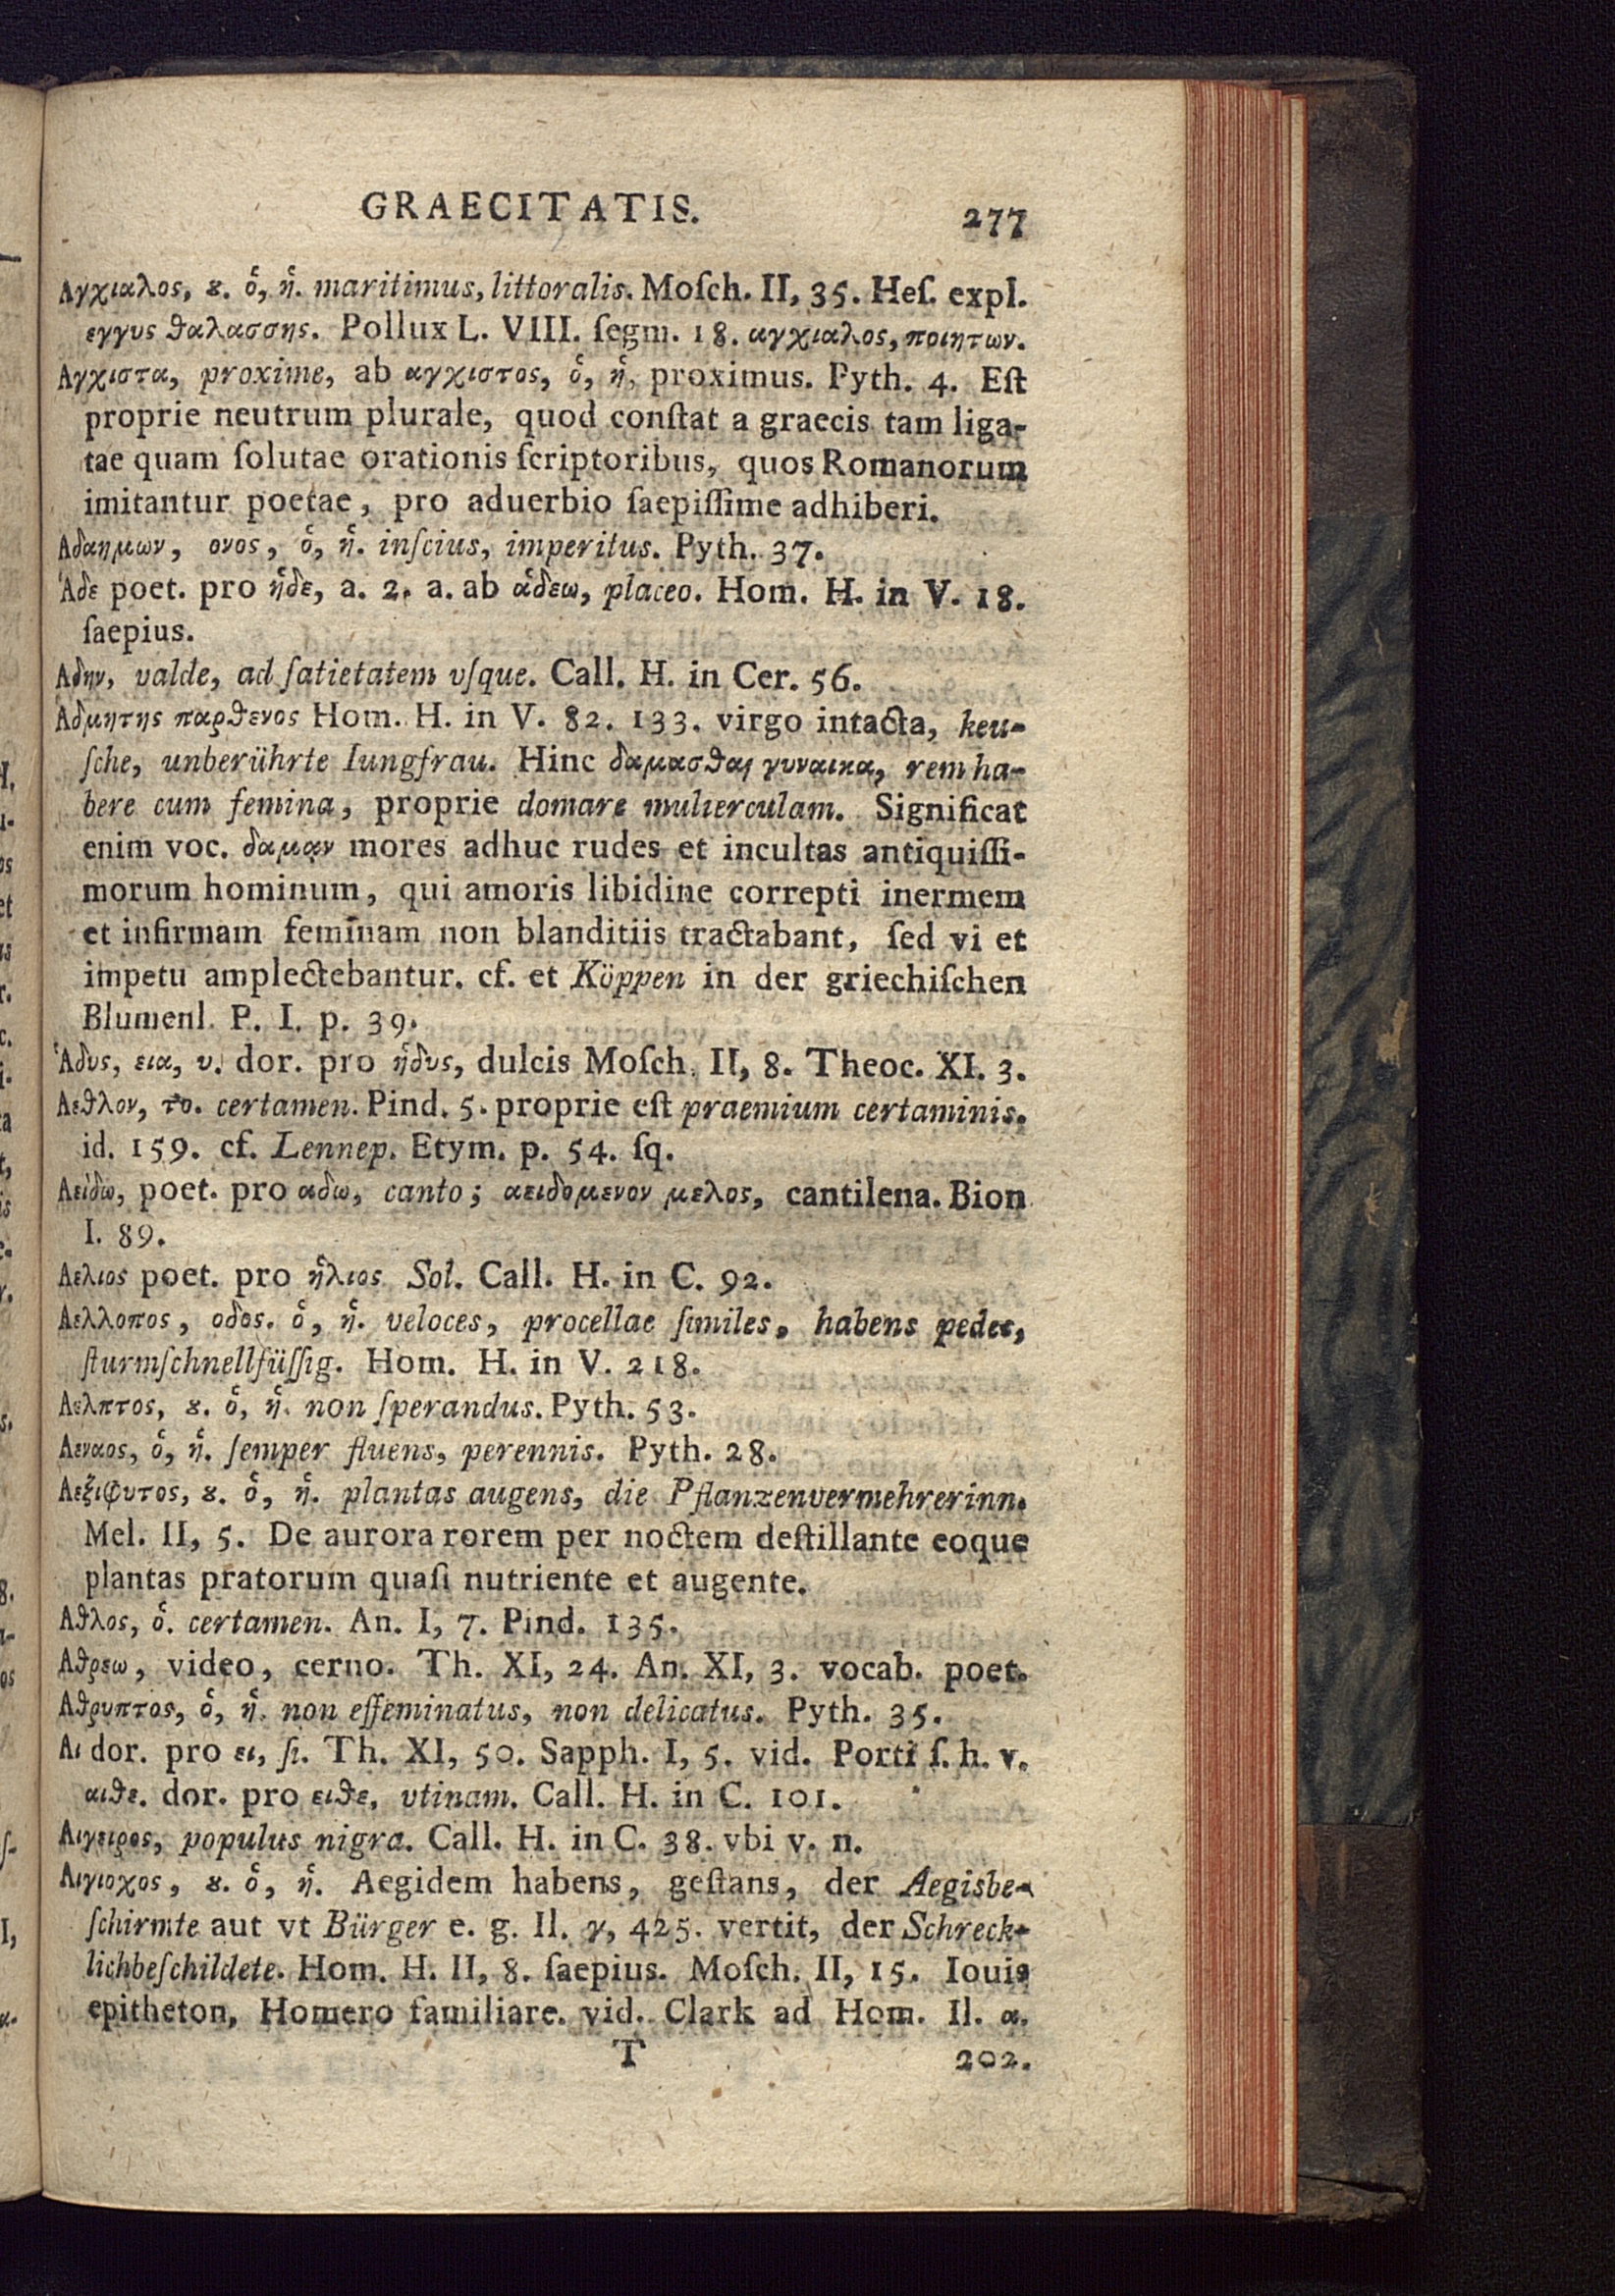 GRAECITATIS. 277
Αγχιαλος, ȣ. ὁ, ἡ. maritimus, littoralis. Moſch. II, 35. Heſ. expl.
εγγυς θαλασσης. Pollux L. VIII. ſegm. 18. αγχιαλος, ποιητων.
Αγχιστα, proxime, ab αγχιστος, ὁ, ἡ, proximus. Pyth. 4. Eſt
proprie neutrum plurale, quod conſtat a graecis tam liga-
tae quam ſolutae orationis ſcriptoribus, quos Romanorum
imitantur poetae, pro aduerbio ſaepiſſime adhiberi.
Αδαημων, ονος, ὁ, ἡ. inſcius, imperitus. Pyth. 37.
Ἁδε poet. pro ἡδε, a. 2. a. ab ἁδεω, placeo. Hom. H. in V. 18.
ſaepius.
Αδην, valde, ad ſatietatem vſque. Call. H. in Cer. 56.
Αδμητης παρθενος Hom. H. in V. 82. 133. virgo intacta, keu-
ſche, unberührte Iungfrau. Hinc δαμασθαι γυναικα, rem ha-
bere cum femina, proprie domare mulierculam. Significat
enim voc. δαμᾳν mores adhuc rudes et incultas antiquiſſi-
morum hominum, qui amoris libidine correpti inermem
et infirmam feminam non blanditiis tractabant, ſed vi et
impetu amplectebantur. cf. et Köppen in der griechiſchen
Blumenl. P. I. p. 39.
Ἁδυς, εια, υ. dor. pro ἡδυς, dulcis Moſch. II, 8. Theoc. XI. 3.
Αεθλον, το. certamen. Pind. 5. proprie eſt praemium certaminis.
id. 159. cf. Lennep. Etym. p. 54. ſq.
Αειδω, poet. pro αδω, canto; αειδομενον μελος, cantilena. Bion
I. 89.
Αελιος poet. pro ἡλιος Sol. Call. H. in C. 92.
Αελλοπος, οδος. ὁ, ἡ. veloces, procellae ſimiles, habens pedes,
ſturmſchnellfüſſig. Hom. H. in V. 218.
Αελπτος, ȣ. ὁ, ἡ. non ſperandus. Pyth. 53.
Αεναος, ὁ, ἡ. ſemper fluens, perennis. Pyth. 28.
Αεξιφυτος, ȣ. ὁ, ἡ. plantas augens, die Pflanzenvermehrerinn.
Mel. II, 5. De aurora rorem per noctem deſtillante eoque
plantas pratorum quaſi nutriente et augente.
Αθλος, ὁ. certamen. An. I, 7. Pind. 135.
Αθρεω, video, cerno. Th. XI, 24. An. XI, 3. vocab. poet.
Αθρυπτος, ὁ, ἡ. non effeminatus, non delicatus. Pyth. 35.
Αι dor. pro ει, ſi. Th. XI, 50. Sapph. I, 5. vid. Porti ſ. h. v.
αιθε. dor. pro ειθε, vtinam. Call. H. in C. 101.
Αιγειρος, populus nigra. Call. H. in C. 38. vbi v. n.
Αιγιοχος, ȣ. ὁ, ἡ. Aegidem habens, geſtans, der Aegisbe-
ſchirmte aut vt Bürger e. g. Il. γ, 425. vertit, der Schreck-
lichbeſchildete. Hom. H. II, 8. ſaepius. Moſch. II, 15. Iouis
epitheton, Homero familiare. vid. Clark ad Hom. Il. α.
T 202.